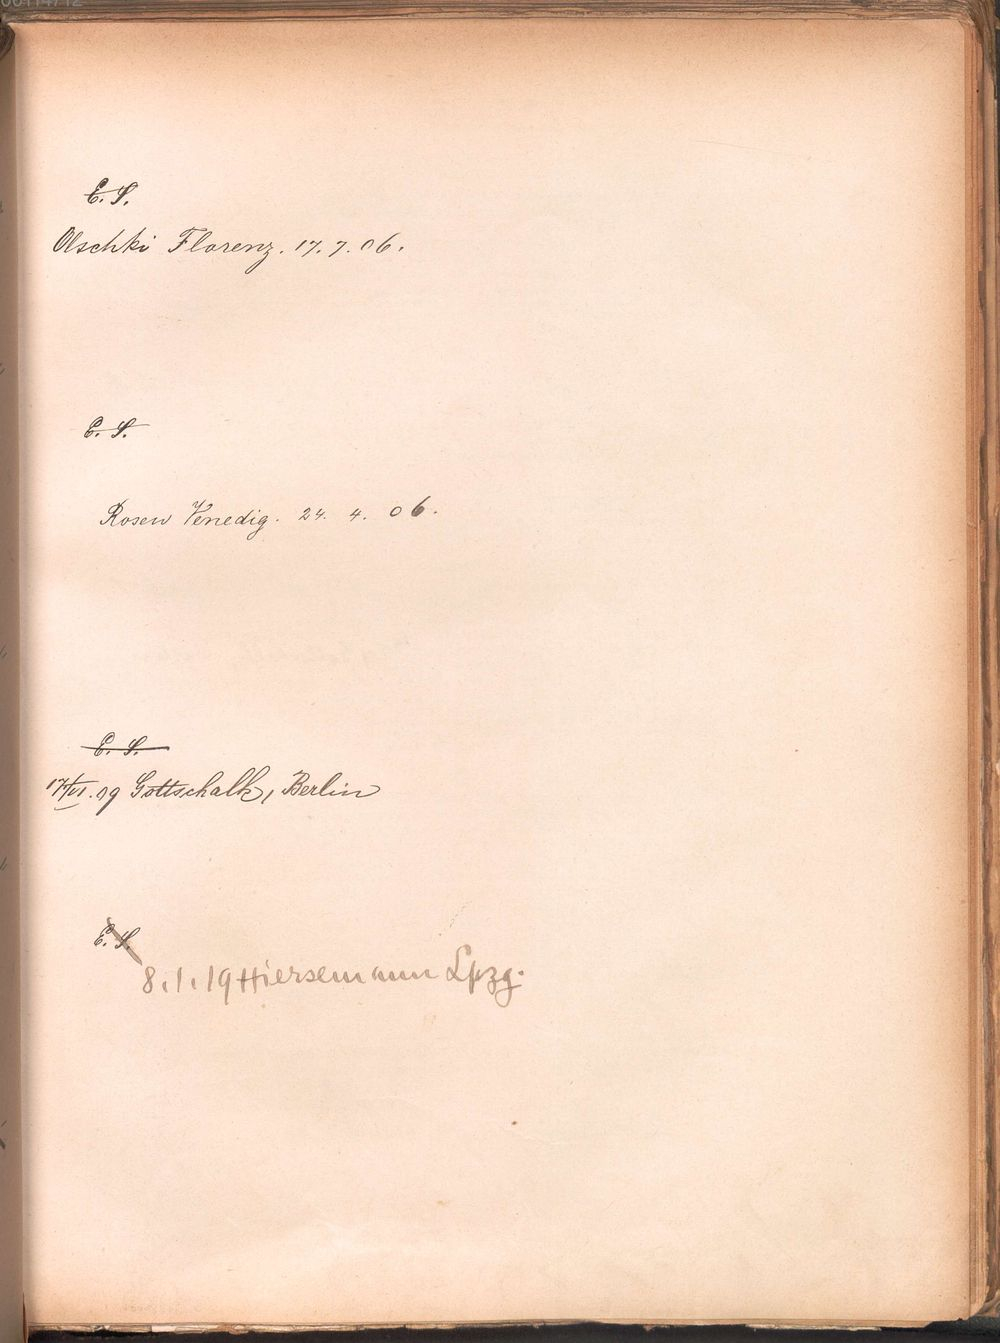 E. S.
Olschki Florenz. 17. 7. 06.
E. S.
Rosen Venedig. 24. 4. 06.
E. S.
17/VI. 09 Gottschalk, Berlin
E. S.
8. 1. 19 Hiersemann Lpzg.